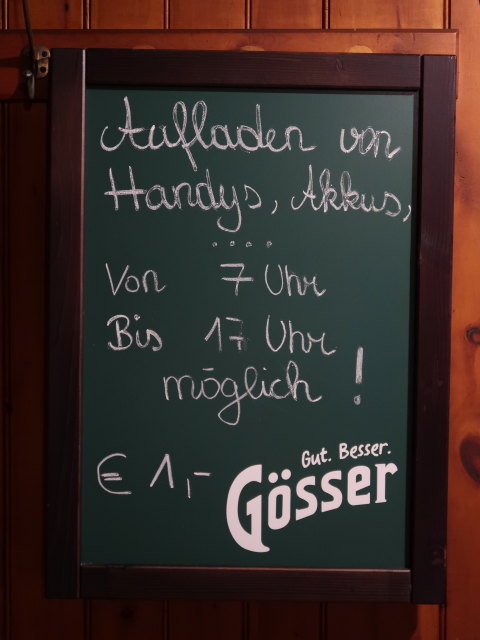 Aufladen von
Handys, Akkus,
....
Von 7 Uhr
Bis 17 Uhr
möglich !
€ 1,-
Gut. Besser.
Gösser